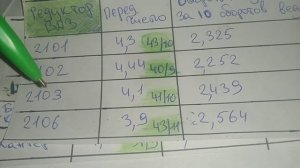 Редуктор Перед
ВАЗ число за 10 оборотов
2101 4,3 43/10 = 2,325
2102 4,44 40/9 = 2252
2103 4,1 41/10 = 2439
2106 3,9 43/11 = 2,564